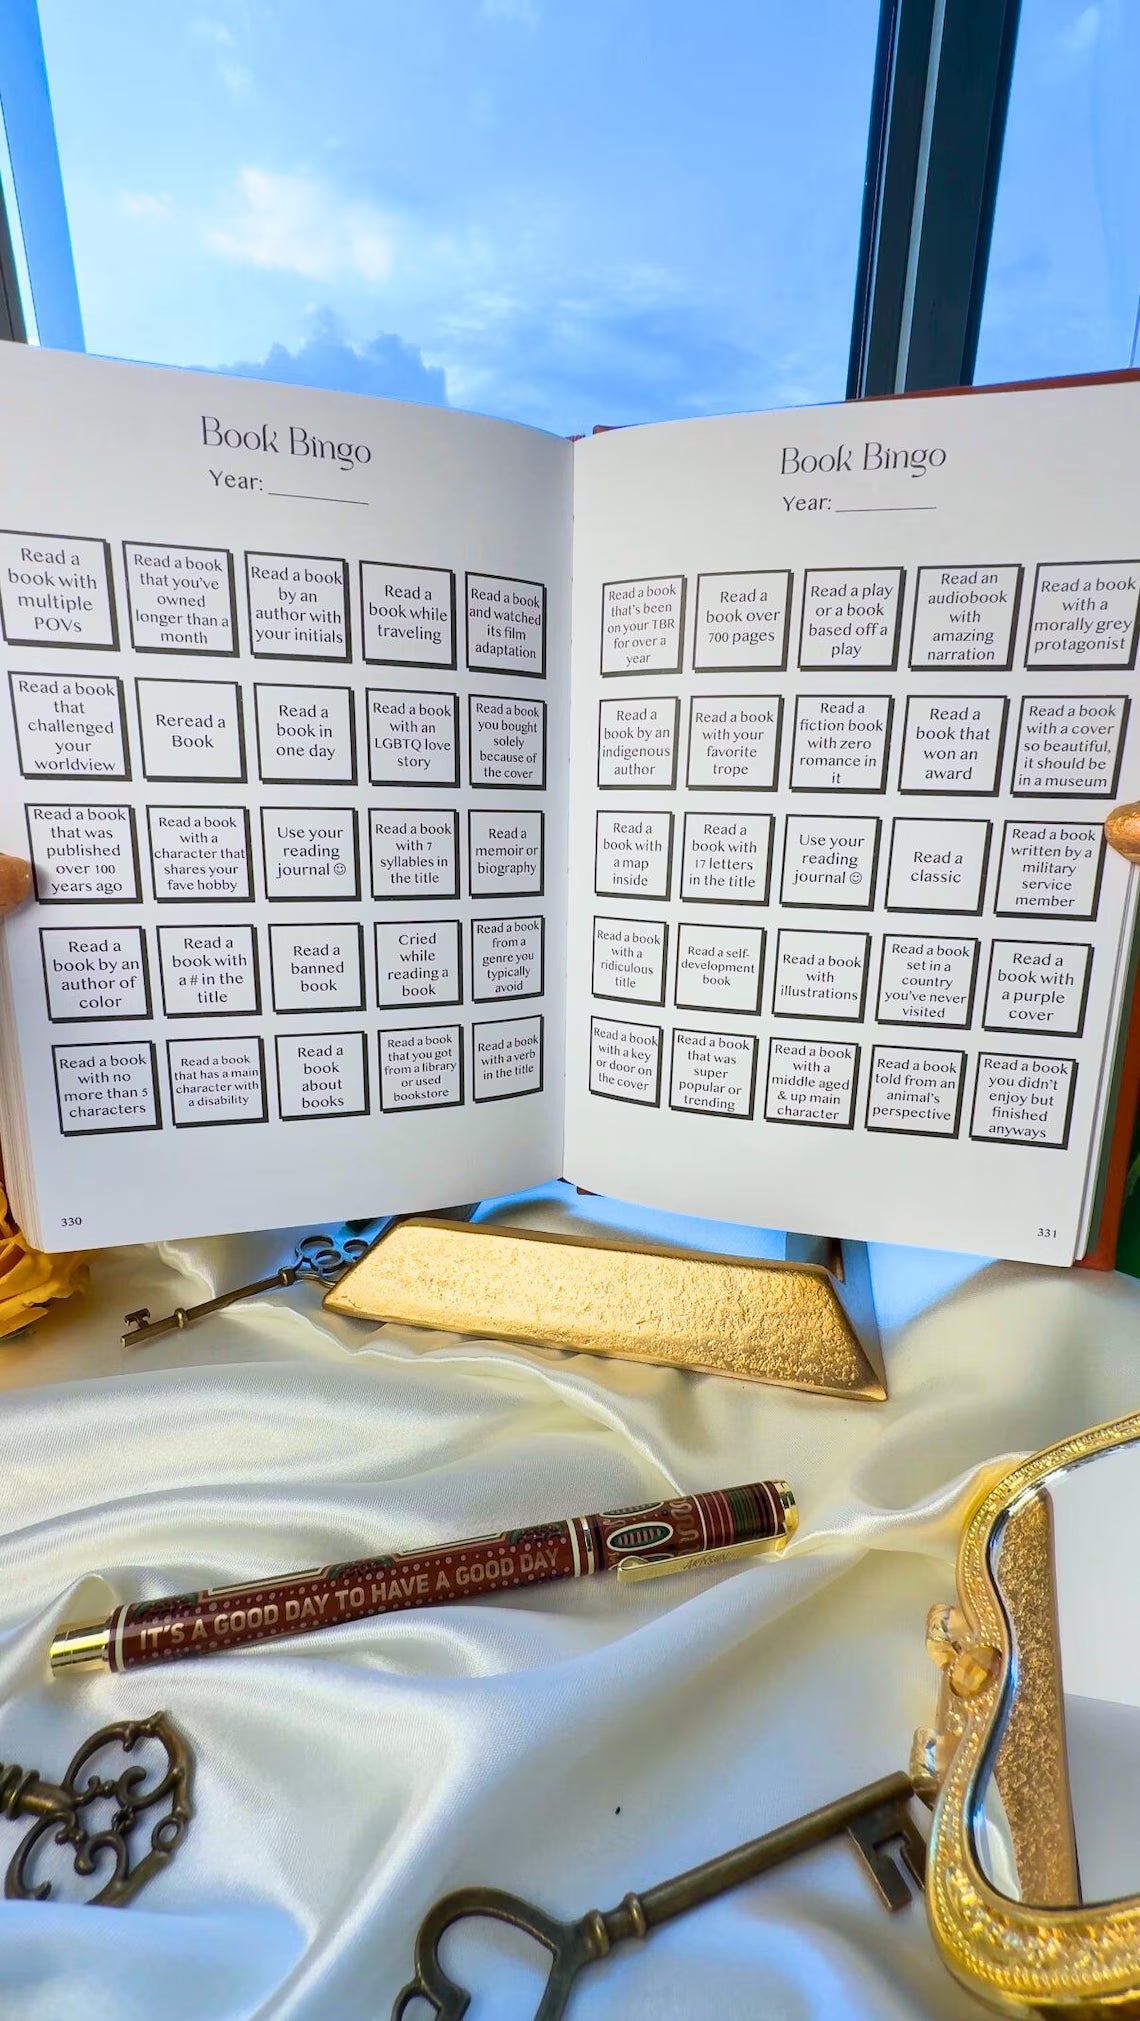 Book Bingo
Year:
Read a
book with
multiple
POVs
Read a book
that you've
owned
longer than a
month
Read a book
by an
author with
your initials
Read a
book while
traveling
Read a book
and watched
its film
adaptation
Read a book
that
challenged
your
worldview
Reread a
Book
Read a
book in
one day
Read a book
with an
LGBTQ love
story
Read a book
you bought
solely
because of
the cover
Read a book
that was
published
over 100
years ago
Read a book
with a
character that
shares your
fave hobby
Use your
reading
journal ☺
Read a book
with 7
syllables in
the title
Read a
memoir or
biography
Read a
book by an
author of
color
Read a
book with
a # in the
title
Read a
banned
book
Cried
while
reading a
book
Read a book
from a
genre you
typically
avoid
Read a book
with no
more than 5
characters
Read a book
that has a main
character with
a disability
Read a
book
about
books
Read a book
that you got
from a library
or used
bookstore
Read a book
with a verb
in the title
330
Book Bingo
Year:
Read a book
that's been
on your TBR
for over a
year
Read a
book over
700 pages
Read a play
or a book
based off a
play
Read an
audiobook
with
amazing
narration
Read a book
with a
morally grey
protagonist
Read a
book by an
indigenous
author
Read a book
with your
favorite
trope
Read a
fiction book
with zero
romance in
it
Read a
book that
won an
award
Read a book
with a cover
so beautiful,
it should be
in a museum
Read a
book with
a map
inside
Read a
book with
17 letters
in the title
Use your
reading
journal ☺
Read a
classic
Read a book
written by a
military
service
member
Read a book
with a
ridiculous
title
Read a self-
development
book
Read a book
with
illustrations
Read a book
set in a
country
you've never
visited
Read a
book with
a purple
cover
Read a book
with a key
or door on
the cover
Read a book
that was
super
popular or
trending
Read a book
with a
middle aged
& up main
character
Read a book
told from an
animal's
perspective
Read a book
you didn't
enjoy but
finished
anyways
331
IT'S A GOOD DAY TO HAVE A GOOD DAY